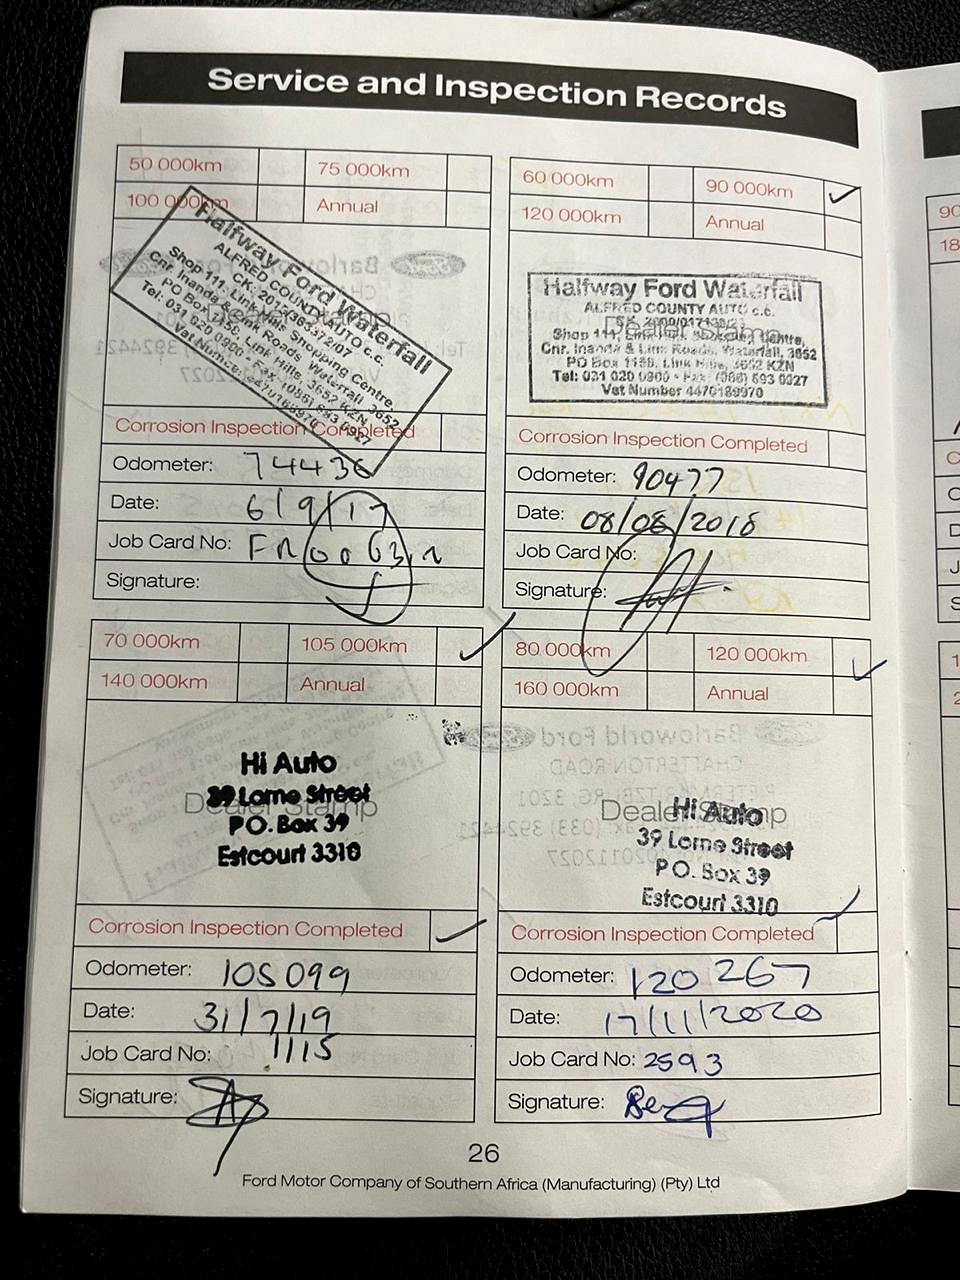 Service and Inspection Records
50 000km
75 000km
100 000km
Annual
Halfway Ford Waterfall
ALFRED COUNTY AUTO c.c.
Shop 111, Link Hills Shopping Centre,
Cnr. Inanda & Link Roads, Waterfall, 3652
PO Box 1156, Link Hills, 3652 KZN
Tel: 031 020 0900 Fax: (086) 693 0927
Vat Number
Dealer Stamp
Corrosion Inspection Completed
Odometer: 74436
Date: 6/9/17
Job Card No:
Signature:
60 000km
90 000km ✓
120 000km
Annual
Halfway Ford Waterfall
ALFRED COUNTY AUTO c.c.
Dealer Stamp
Shop 111, Link Shopping Centre,
Cnr. Inanda & Link Roads, Waterfall, 3652
PO Box 1156, Link Hills, 3652 KZN
Tel: 031 020 0900 - Fax: (086) 693 0927
Vat Number 4470189970
Corrosion Inspection Completed
Odometer: 90477
Date: 08/08/2018
Job Card No:
Signature:
70 000km
105 000km ✓
140 000km
Annual
Hi Auto
39 Lorne Street
Dealer Stamp
P.O. Box 39
Estcourt 3310
Corrosion Inspection Completed ✓
Odometer: 105099
Date: 31/7/19
Job Card No: 1115
Signature:
80 000km
120 000km ✓
160 000km
Annual
Dealer Stamp
Hi Auto
39 Lorne Street
P.O. Box 39
Estcourt 3310
Corrosion Inspection Completed ✓
Odometer: 120267
Date: 17/11/2020
Job Card No: 2593
Signature:
26
Ford Motor Company of Southern Africa (Manufacturing) (Pty) Ltd